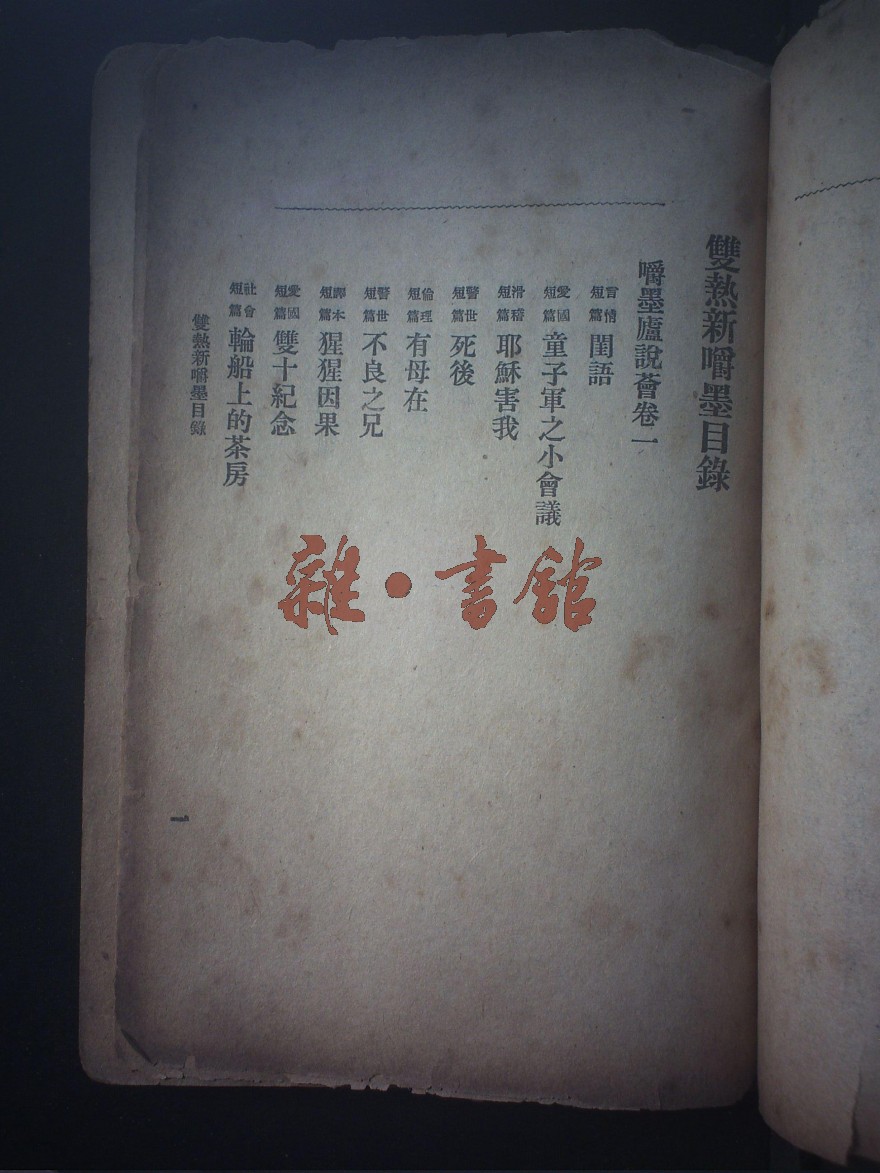 雙熱新嚼墨目錄
嚼墨廬說薈卷一
言情短篇 閨語
愛國短篇 童子軍之小會議
滑稽短篇 耶穌害我
警世短篇 死後
倫理短篇 有母在
警世短篇 不良之兄
譯本短篇 猩猩因果
愛國短篇 雙十紀念
社會短篇 輪船上的茶房
雙熱新嚼墨目錄
一
雜·書館